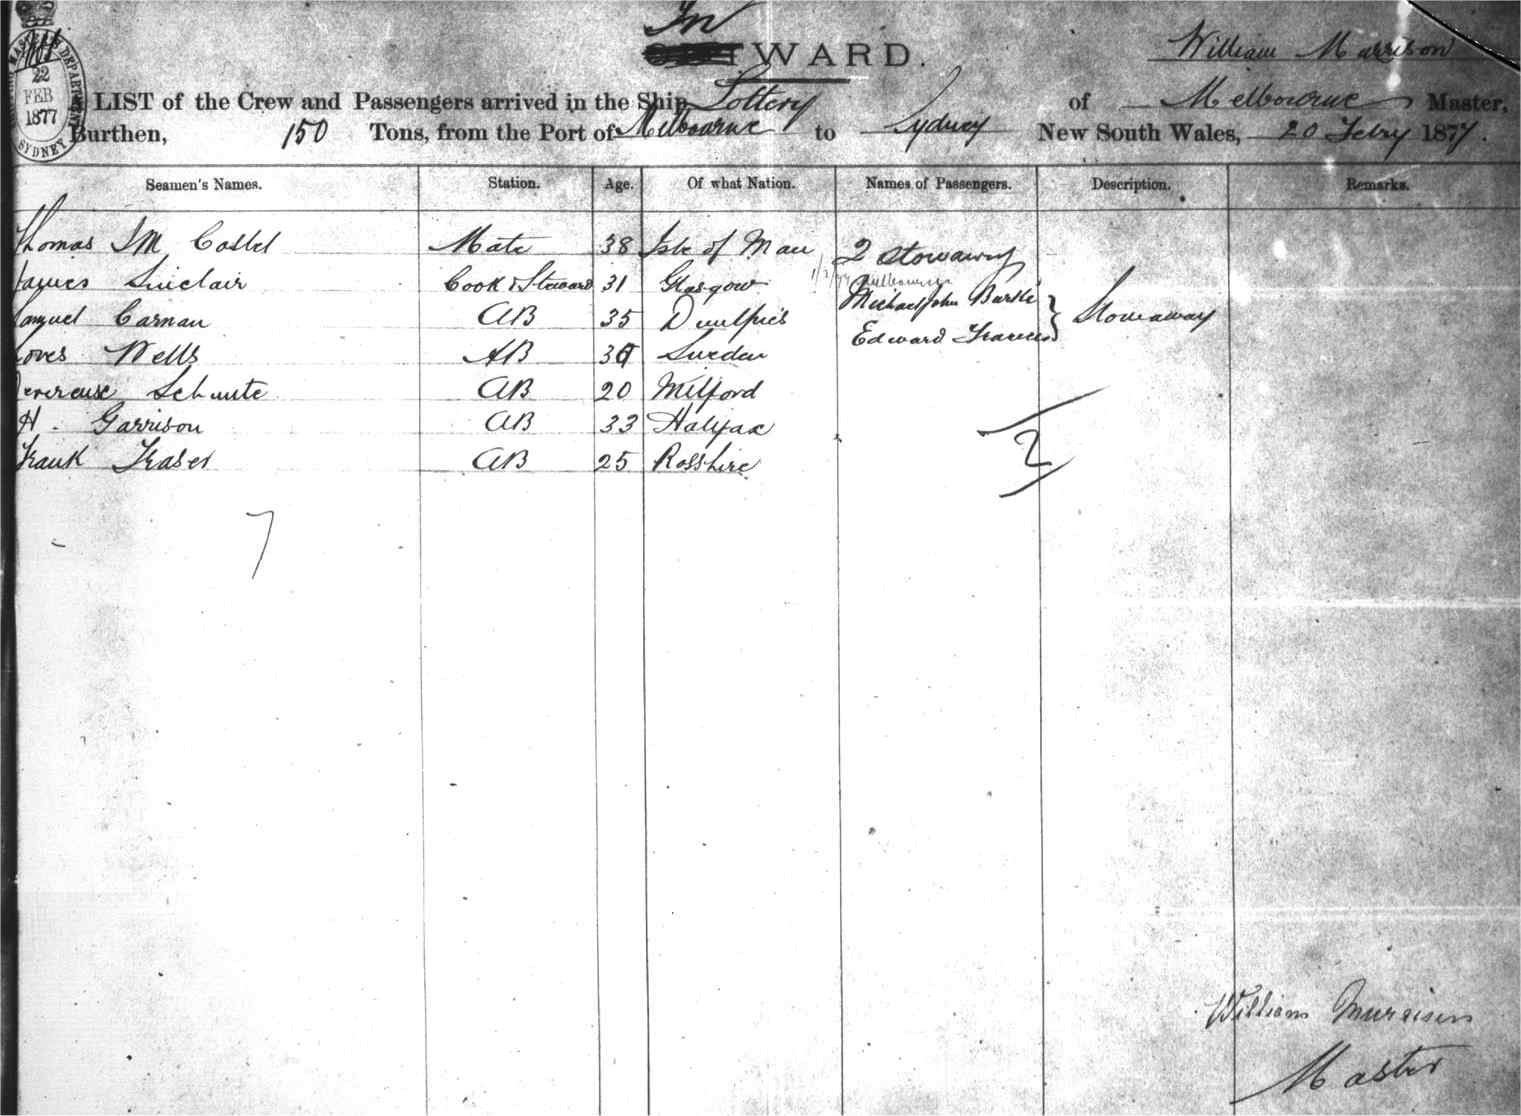 In
TWARD.
William Marrison
22
FEB
1877
SYDNEY
LIST of the Crew and Passengers arrived in the Ship Lottery of Melbourne Master,
Burthen, 150 Tons, from the Port of Melbourne to Sydney New South Wales, 20 Febry 1877.
Seamen's Names. Station. Age. Of what Nation. Names of Passengers. Description. Remarks.
Thomas Mate 38 Isle of Man 2 Stowaways
James Sinclair Cook & Steward 31 Glasgow
Samuel Carnan AB 35 Dumfries Michael John Stowaway
Wells AB Sweden Edward Francis
Schutte AB 20 Milford
H. Garrison AB 33 Halifax
Frank Fraser AB 25 Rosshire
2
7
William
Master